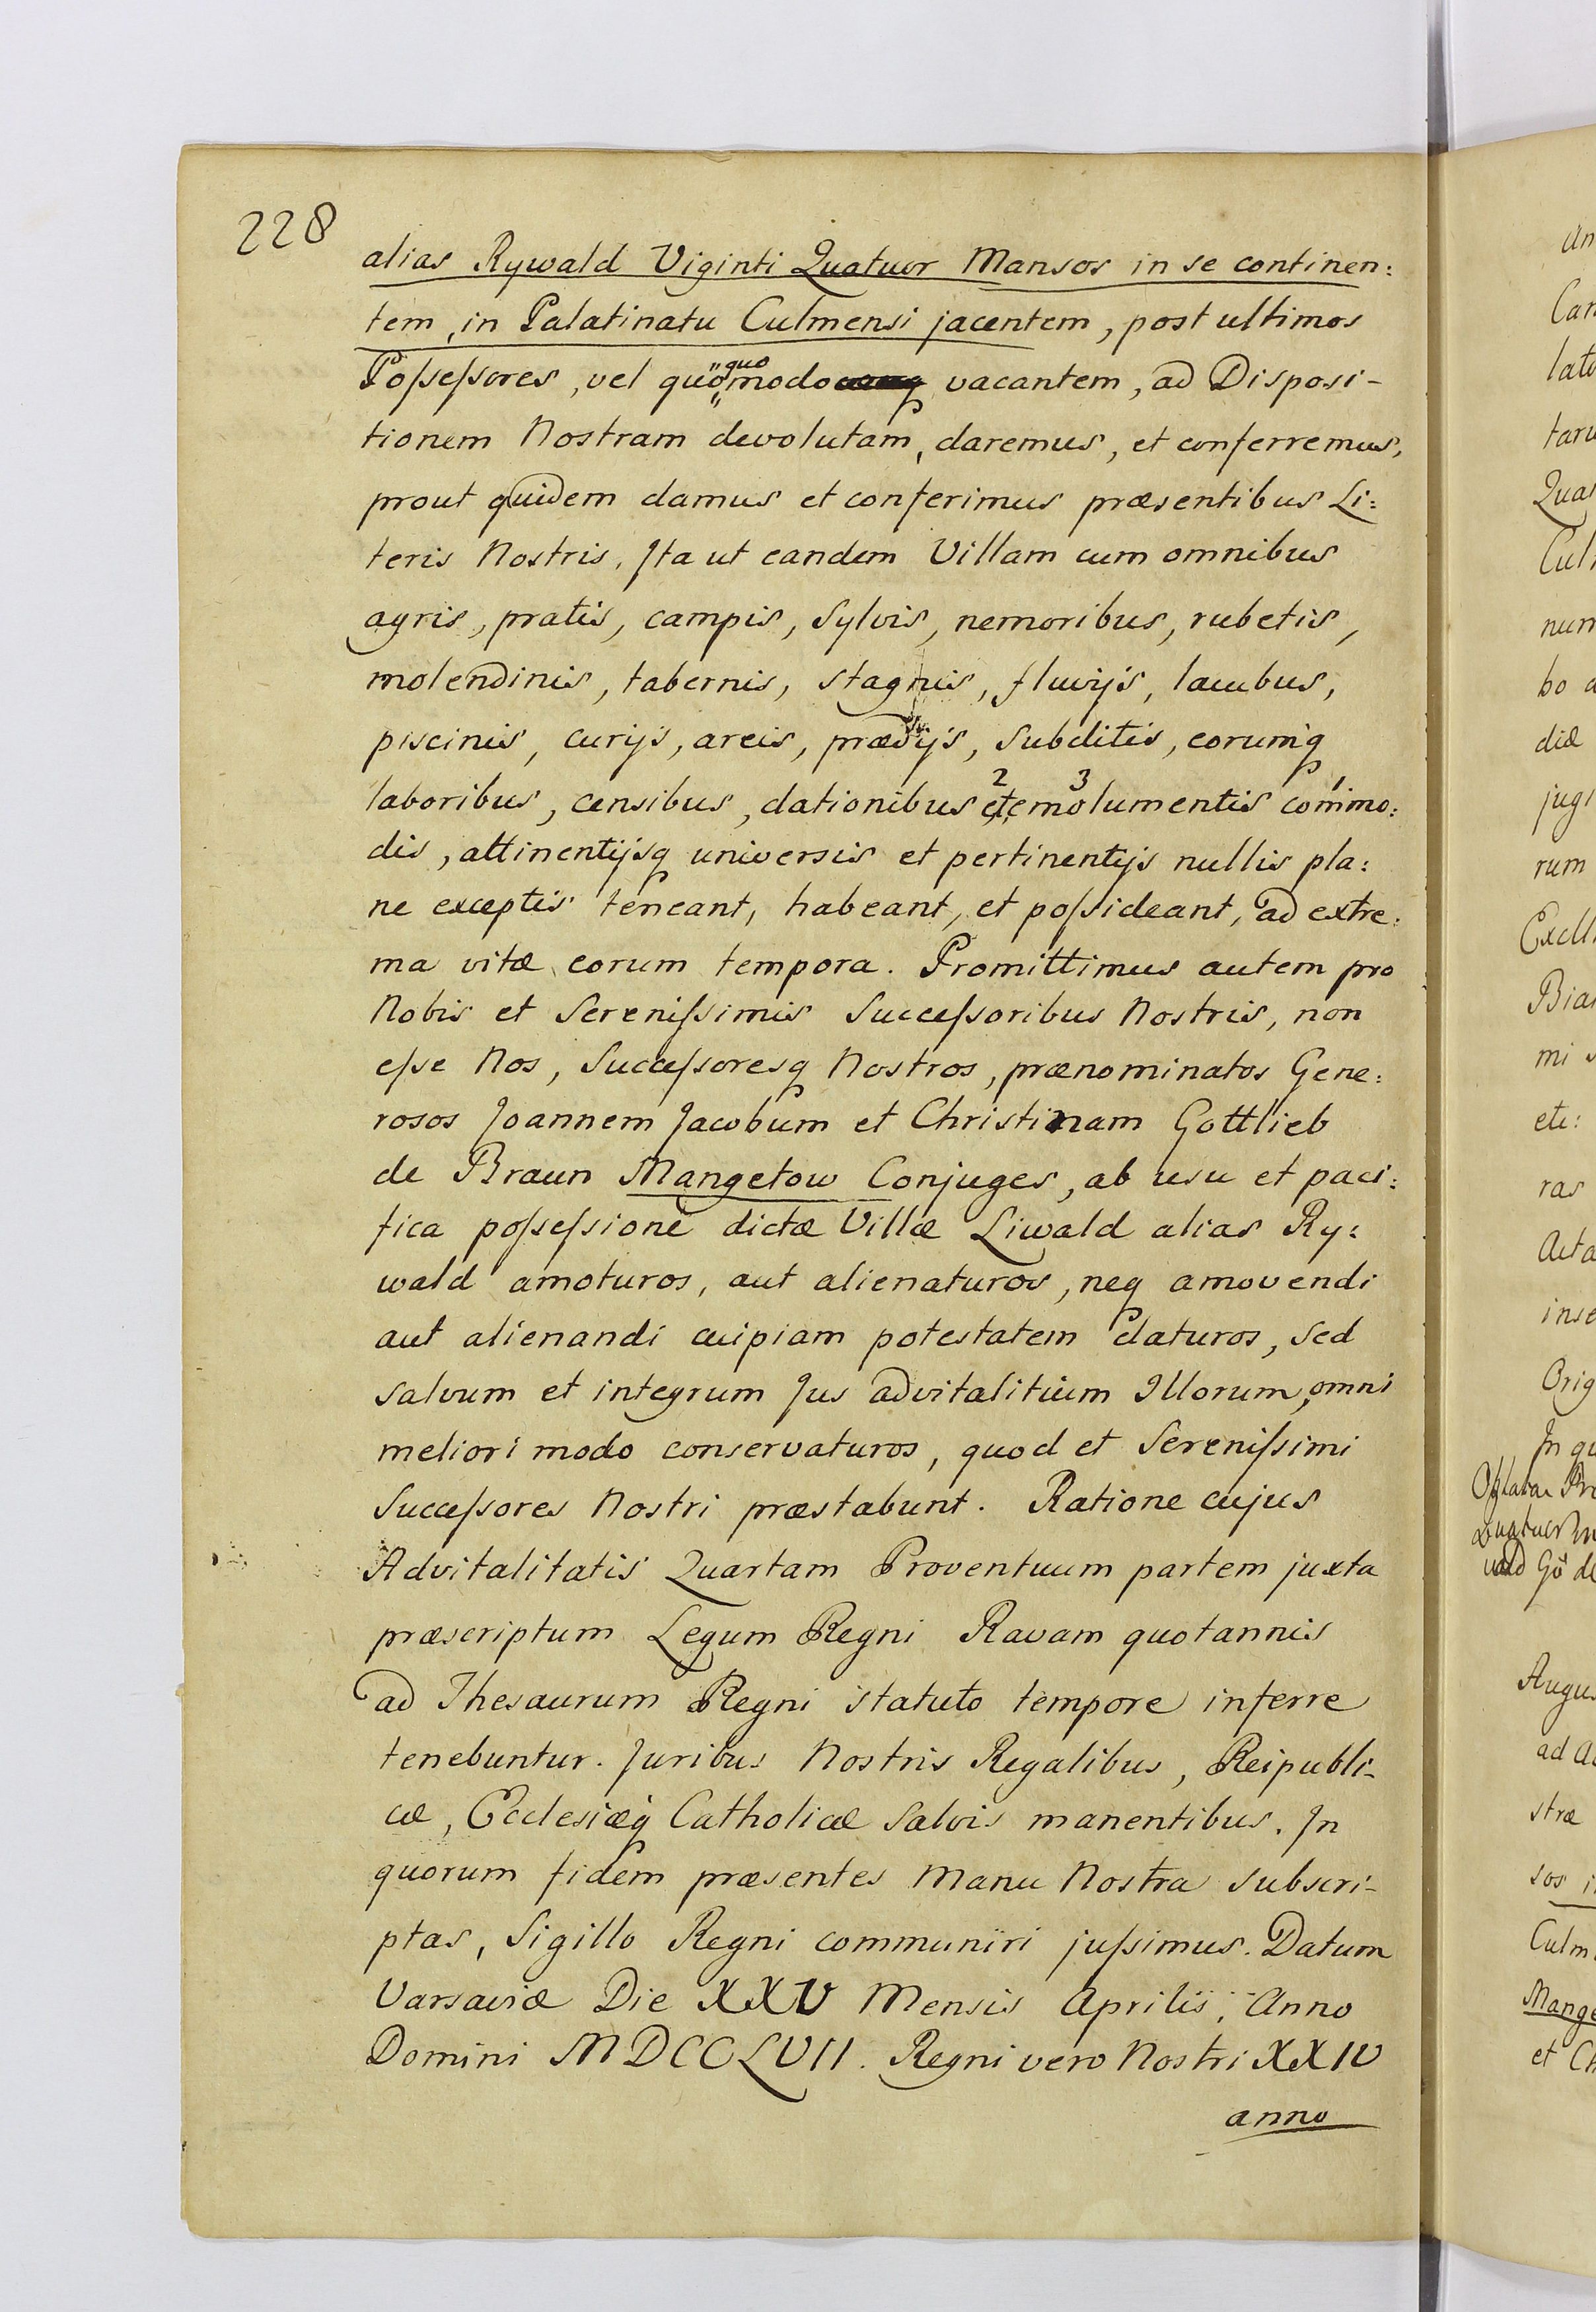 228
alias Rywald Viginti Quatuor Mansos in se continen:
tem, in Palatinatu Culmensi jacentem, post ultimos
Poſseſsores, vel quo "quo modo vacantem, ad Disposi-
tionem Nostram devolutam, daremus, et conferremus,
prout quidem damus et conferimus præsentibus Li:
teris Nostris. Ita ut eandem Villam cum omnibus
agris, pratis, campis, Sylvis, nemoribus, rubetis,
molendinis, tabernis, stagnis, fluvijs, lacubus,
piscinis, curijs, areis, prædijs, Subditis, eorumq
laboribus, censibus, dationibus et 2 emolumentis 3 commo: 1
dis, attinentijsq universis et pertinentijs nullis pla:
ne exceptis teneant, habeant, et poſsideant, ad extre:
ma vitæ eorum tempora. Promittimus autem pro
Nobis et Sereniſsimis Succeſsoribus Nostris, non
eſse Nos, Succeſsoresq Nostros, prænominatos Gene:
rosos Joannem Jacobum et Christinam Gottlieb
de Braun Mangetow Conjuges, ab usu et paci:
fica poſseſsione dictæ Villæ Liwald alias Ry:
wald amoturos, aut alienaturos, neq amovendi
aut alienandi cuipiam potestatem daturos, Sed
salvum et integrum Jus advitalitium Illorum, omni
meliori modo conservaturos, quod et Sereniſsimi
Succeſsores Nostri præstabunt. Ratione cujus
Advitalitatis Quartam Proventuum partem juxta
præscriptum Legum Regni Ravam quotannis
ad Thesaurum Regni statuto tempore inferre
tenebuntur. Juribus Nostris Regalibus, Reipubli-
cæ, Ecclesiæq Catholicæ Salvis manentibus. In
quorum fidem præsentes Manu Nostra subscri-
ptas, Sigillo Regni communiri juſsimus. Datum
Varsaviæ Die XXV Mensis Aprilis, Anno
Domini MDCCLVII. Regni vero Nostri XXIV
anno